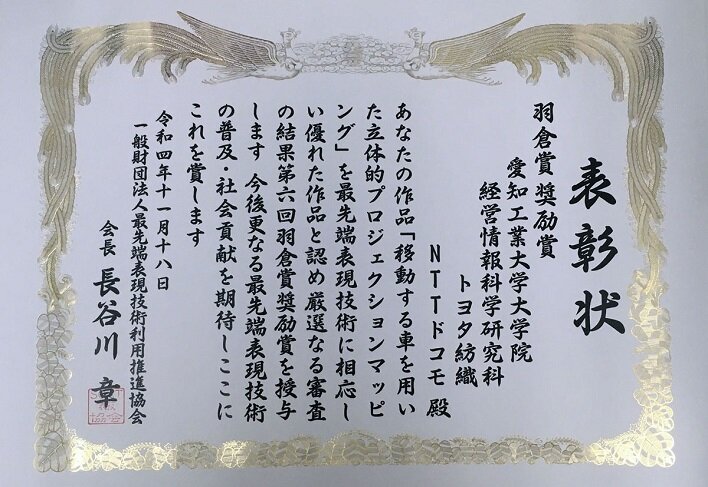 表彰状
羽倉賞 奨励賞
愛知工業大学大学院
経営情報科学研究科
トヨタ紡織
NTTドコモ 殿
あなたの作品「移動する車を用い
た立体的プロジェクションマッピ
ング」を最先端表現技術に相応し
い優れた作品と認め厳選なる審査
の結果第六回羽倉賞奨励賞を授与
します 今後更なる最先端表現技術
の普及・社会貢献を期待しここに
これを賞します
令和四年十一月十八日
一般財団法人最先端表現技術利用推進協会
会長 長谷川 章